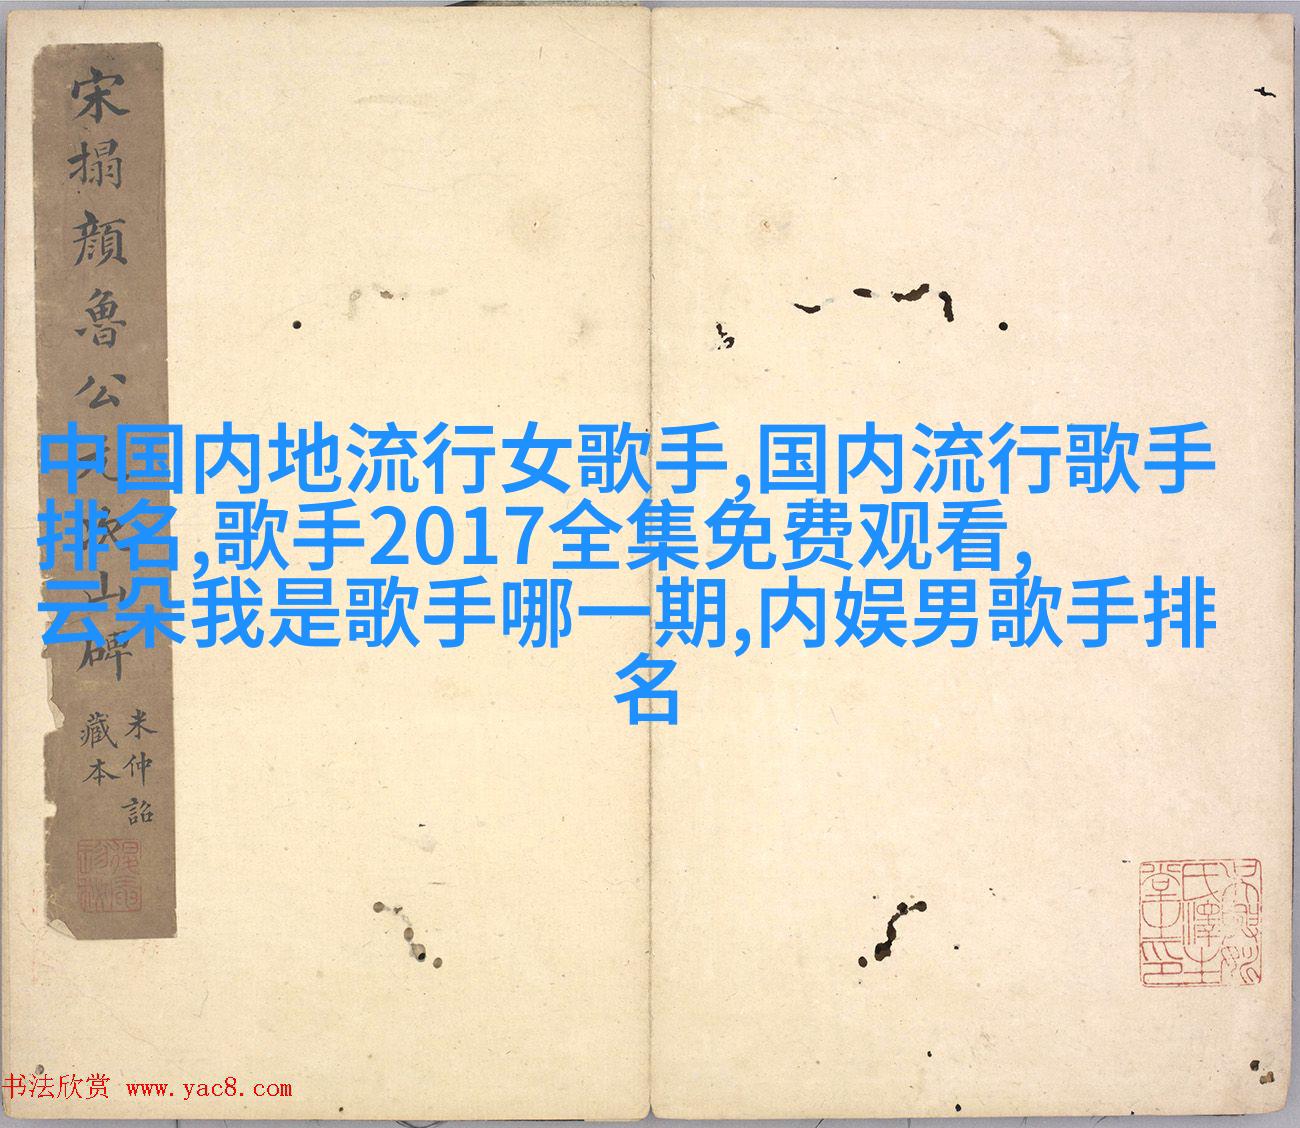 宋搨顏魯公元次山碑
米仲詔
藏本
中国内地流行女歌手,国内流行歌手
排名,歌手2017全集免费观看,
云朵我是歌手哪一期,内娱男歌手排
名
书法欣赏 www.yac8.com